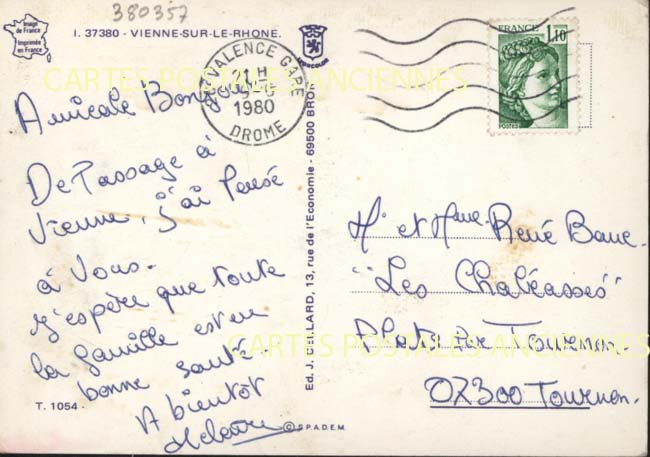 380357
Image de France
Imprimée en France
I. 37380 - VIENNE-SUR-LE-RHONE.
VALENCE GARE
1980
DROME
FRANCE
1,10
POSTES
CARTES POSTALES ANCIENNES
Amicale Bonjour
De Passage à
Vienne, j'ai pensé
à Vous.
J'espère que toute
la famille est en
bonne santé.
A bientôt
T. 1054 -
Ed. J. CELLARD, 13, rue de l'Economie - 69500 BRON
© S.P.A.D.E.M.
Mr et Mme René
"Les Chaléasses"
Plats par Tournon
07300 Tournon.
CARTES POSTALES ANCIENNES